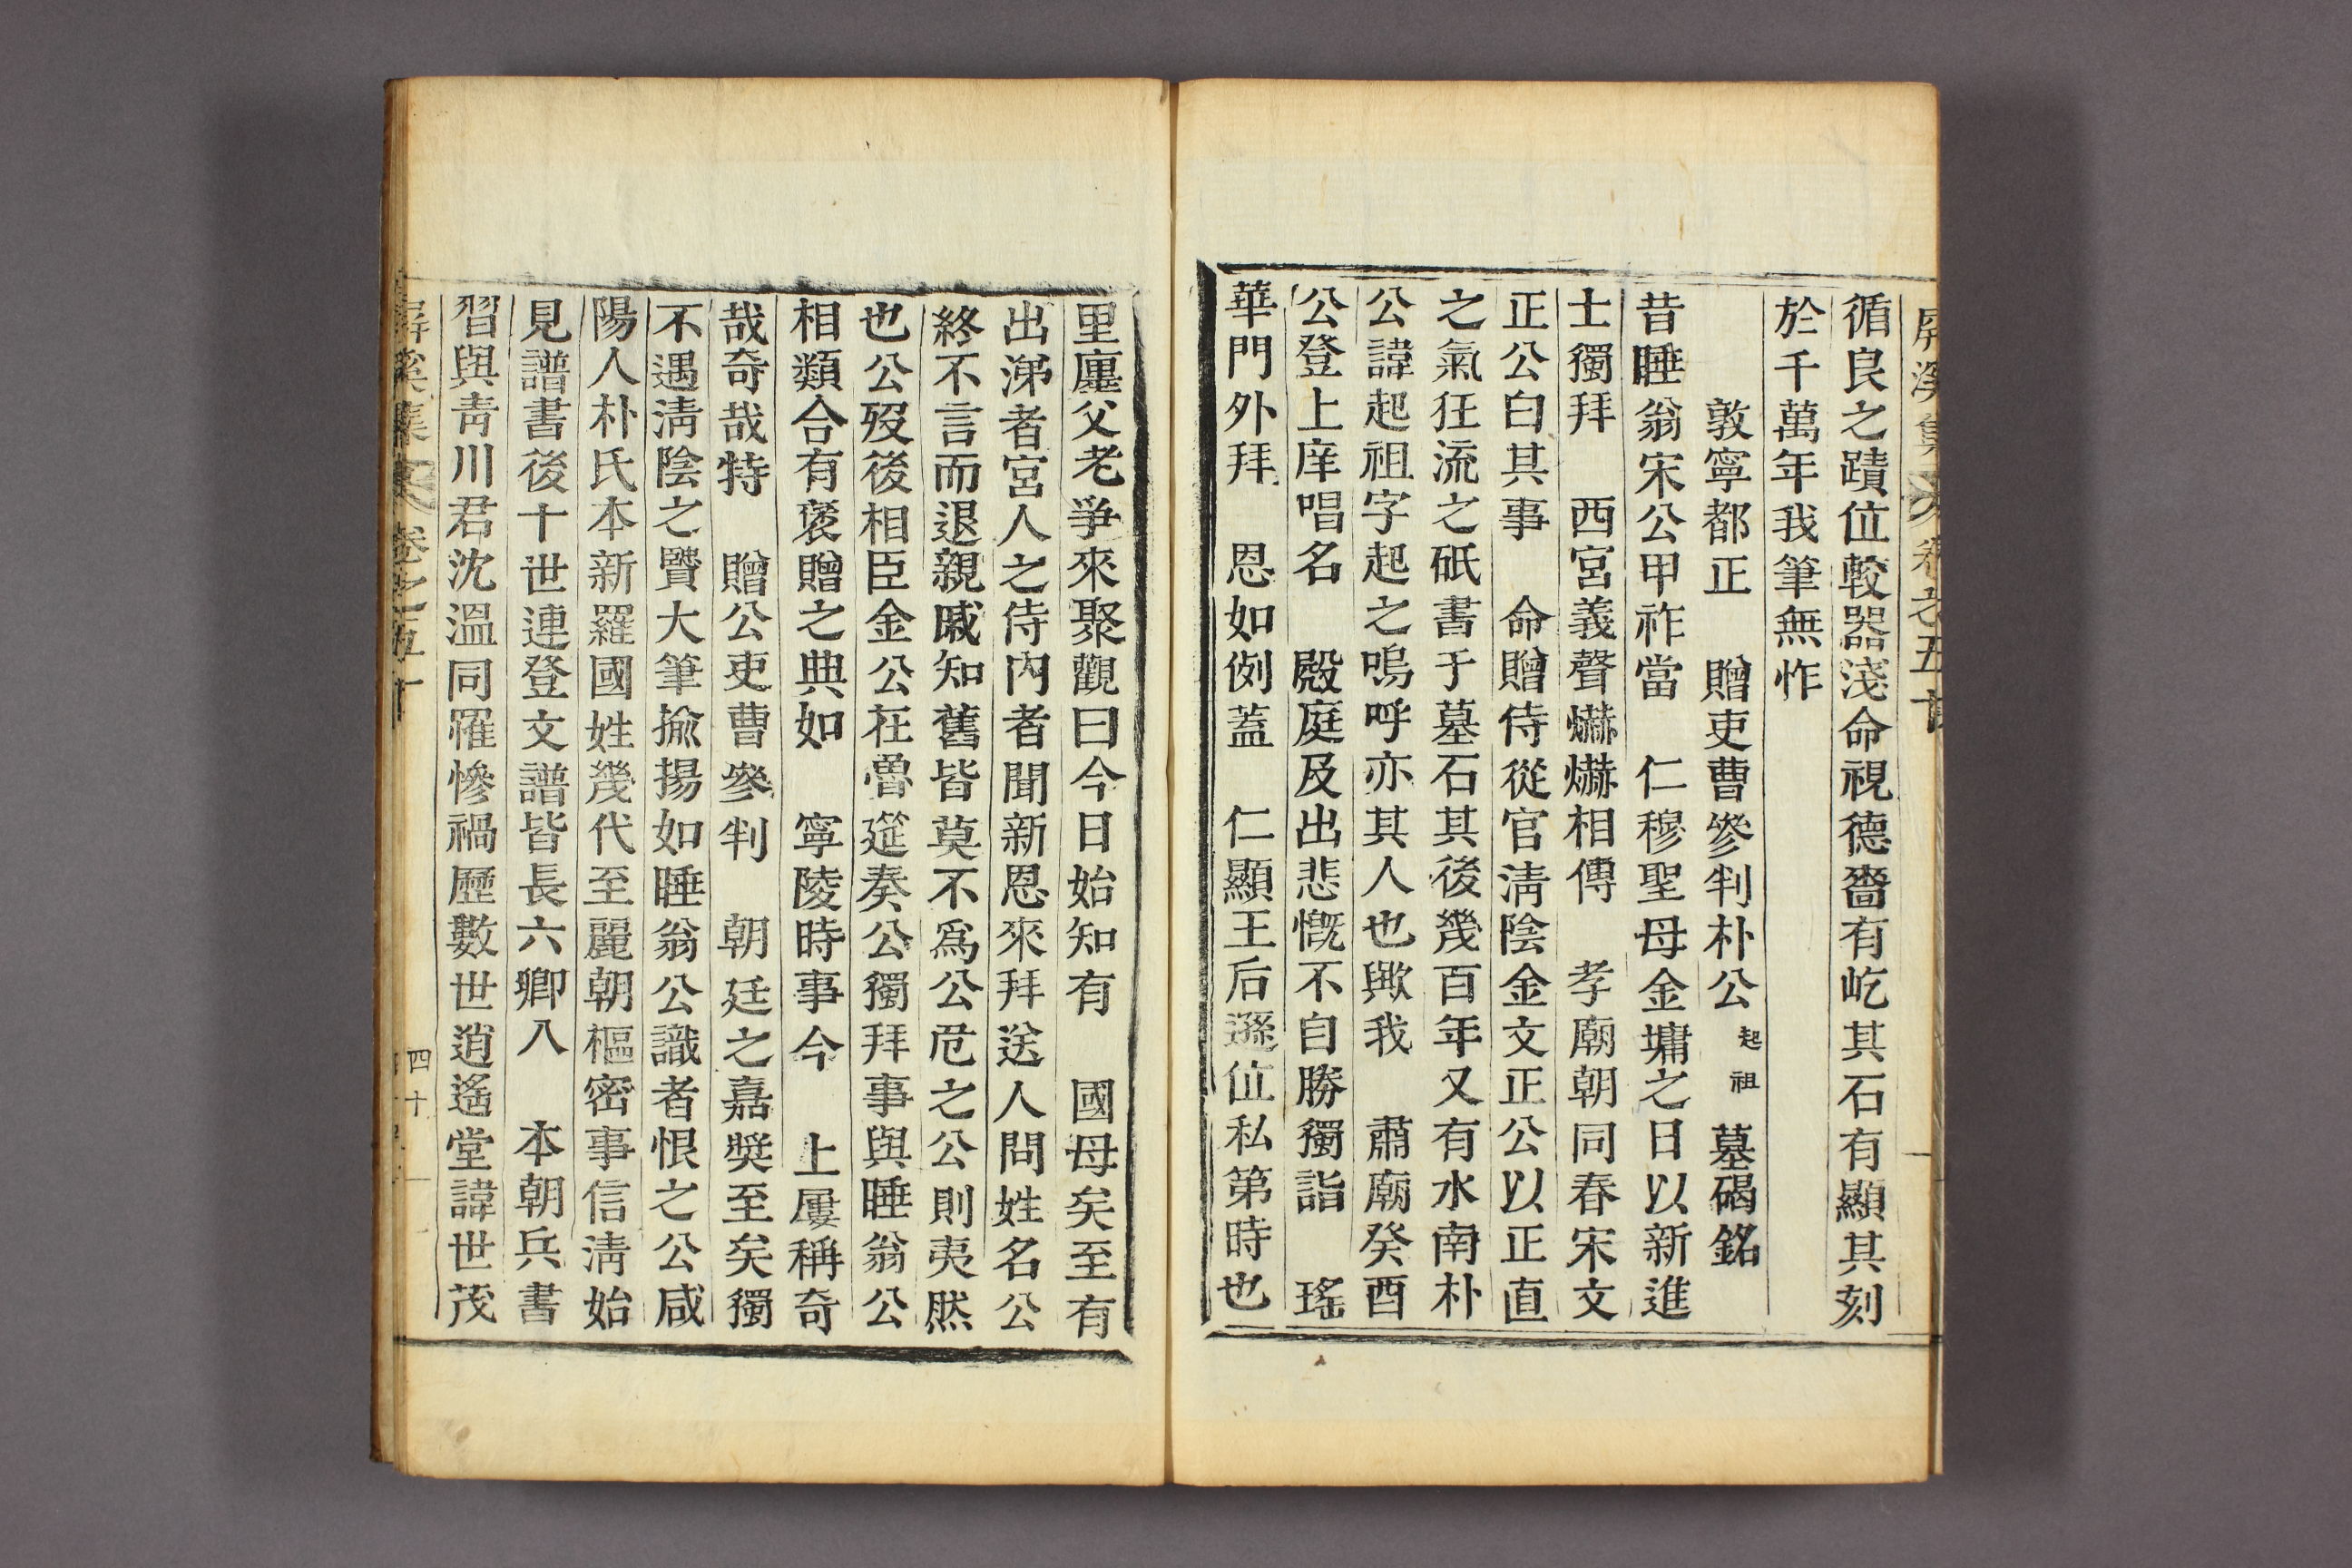 屛溪集 卷之五十
循良之蹟位較器淺命視德嗇有屹其石有顯其刻
於千萬年我筆無怍
敦寧都正 贈吏曹參判朴公起祖墓碣銘
昔睡翁宋公甲祚當 仁穆聖母金墉之日以新進
士獨拜 西宮義聲爀爀相傳 孝廟朝同春宋文
正公白其事 命贈侍從官淸陰金文正公以正直
之氣狂流之砥書于墓石其後幾百年又有水南朴
公諱起祖字起之嗚呼亦其人也歟我 肅廟癸酉
公登上庠唱名 殿庭及出悲慨不自勝獨詣 瑤
華門外拜 恩如例蓋 仁顯王后遜位私第時也
里廛父老爭來聚觀曰今日始知有 國母矣至有
出涕者宮人之侍內者聞新恩來拜送人問姓名公
終不言而退親戚知舊皆莫不爲公危之公則夷然
也公歿後相臣金公在魯筵奏公獨拜事與睡翁公
相類合有褒贈之典如 寧陵時事今 上屢稱奇
哉奇哉特 贈公吏曹參判 朝廷之嘉奬至矣獨
不遇淸陰之贒大筆揄揚如睡翁公識者恨之公咸
陽人朴氏本新羅國姓幾代至麗朝樞密事信淸始
見譜書後十世連登文譜皆長六卿入 本朝兵書
習與靑川君沈溫同罹慘禍歷數世逍遙堂諱世茂
屛溪集 卷之五十 四十